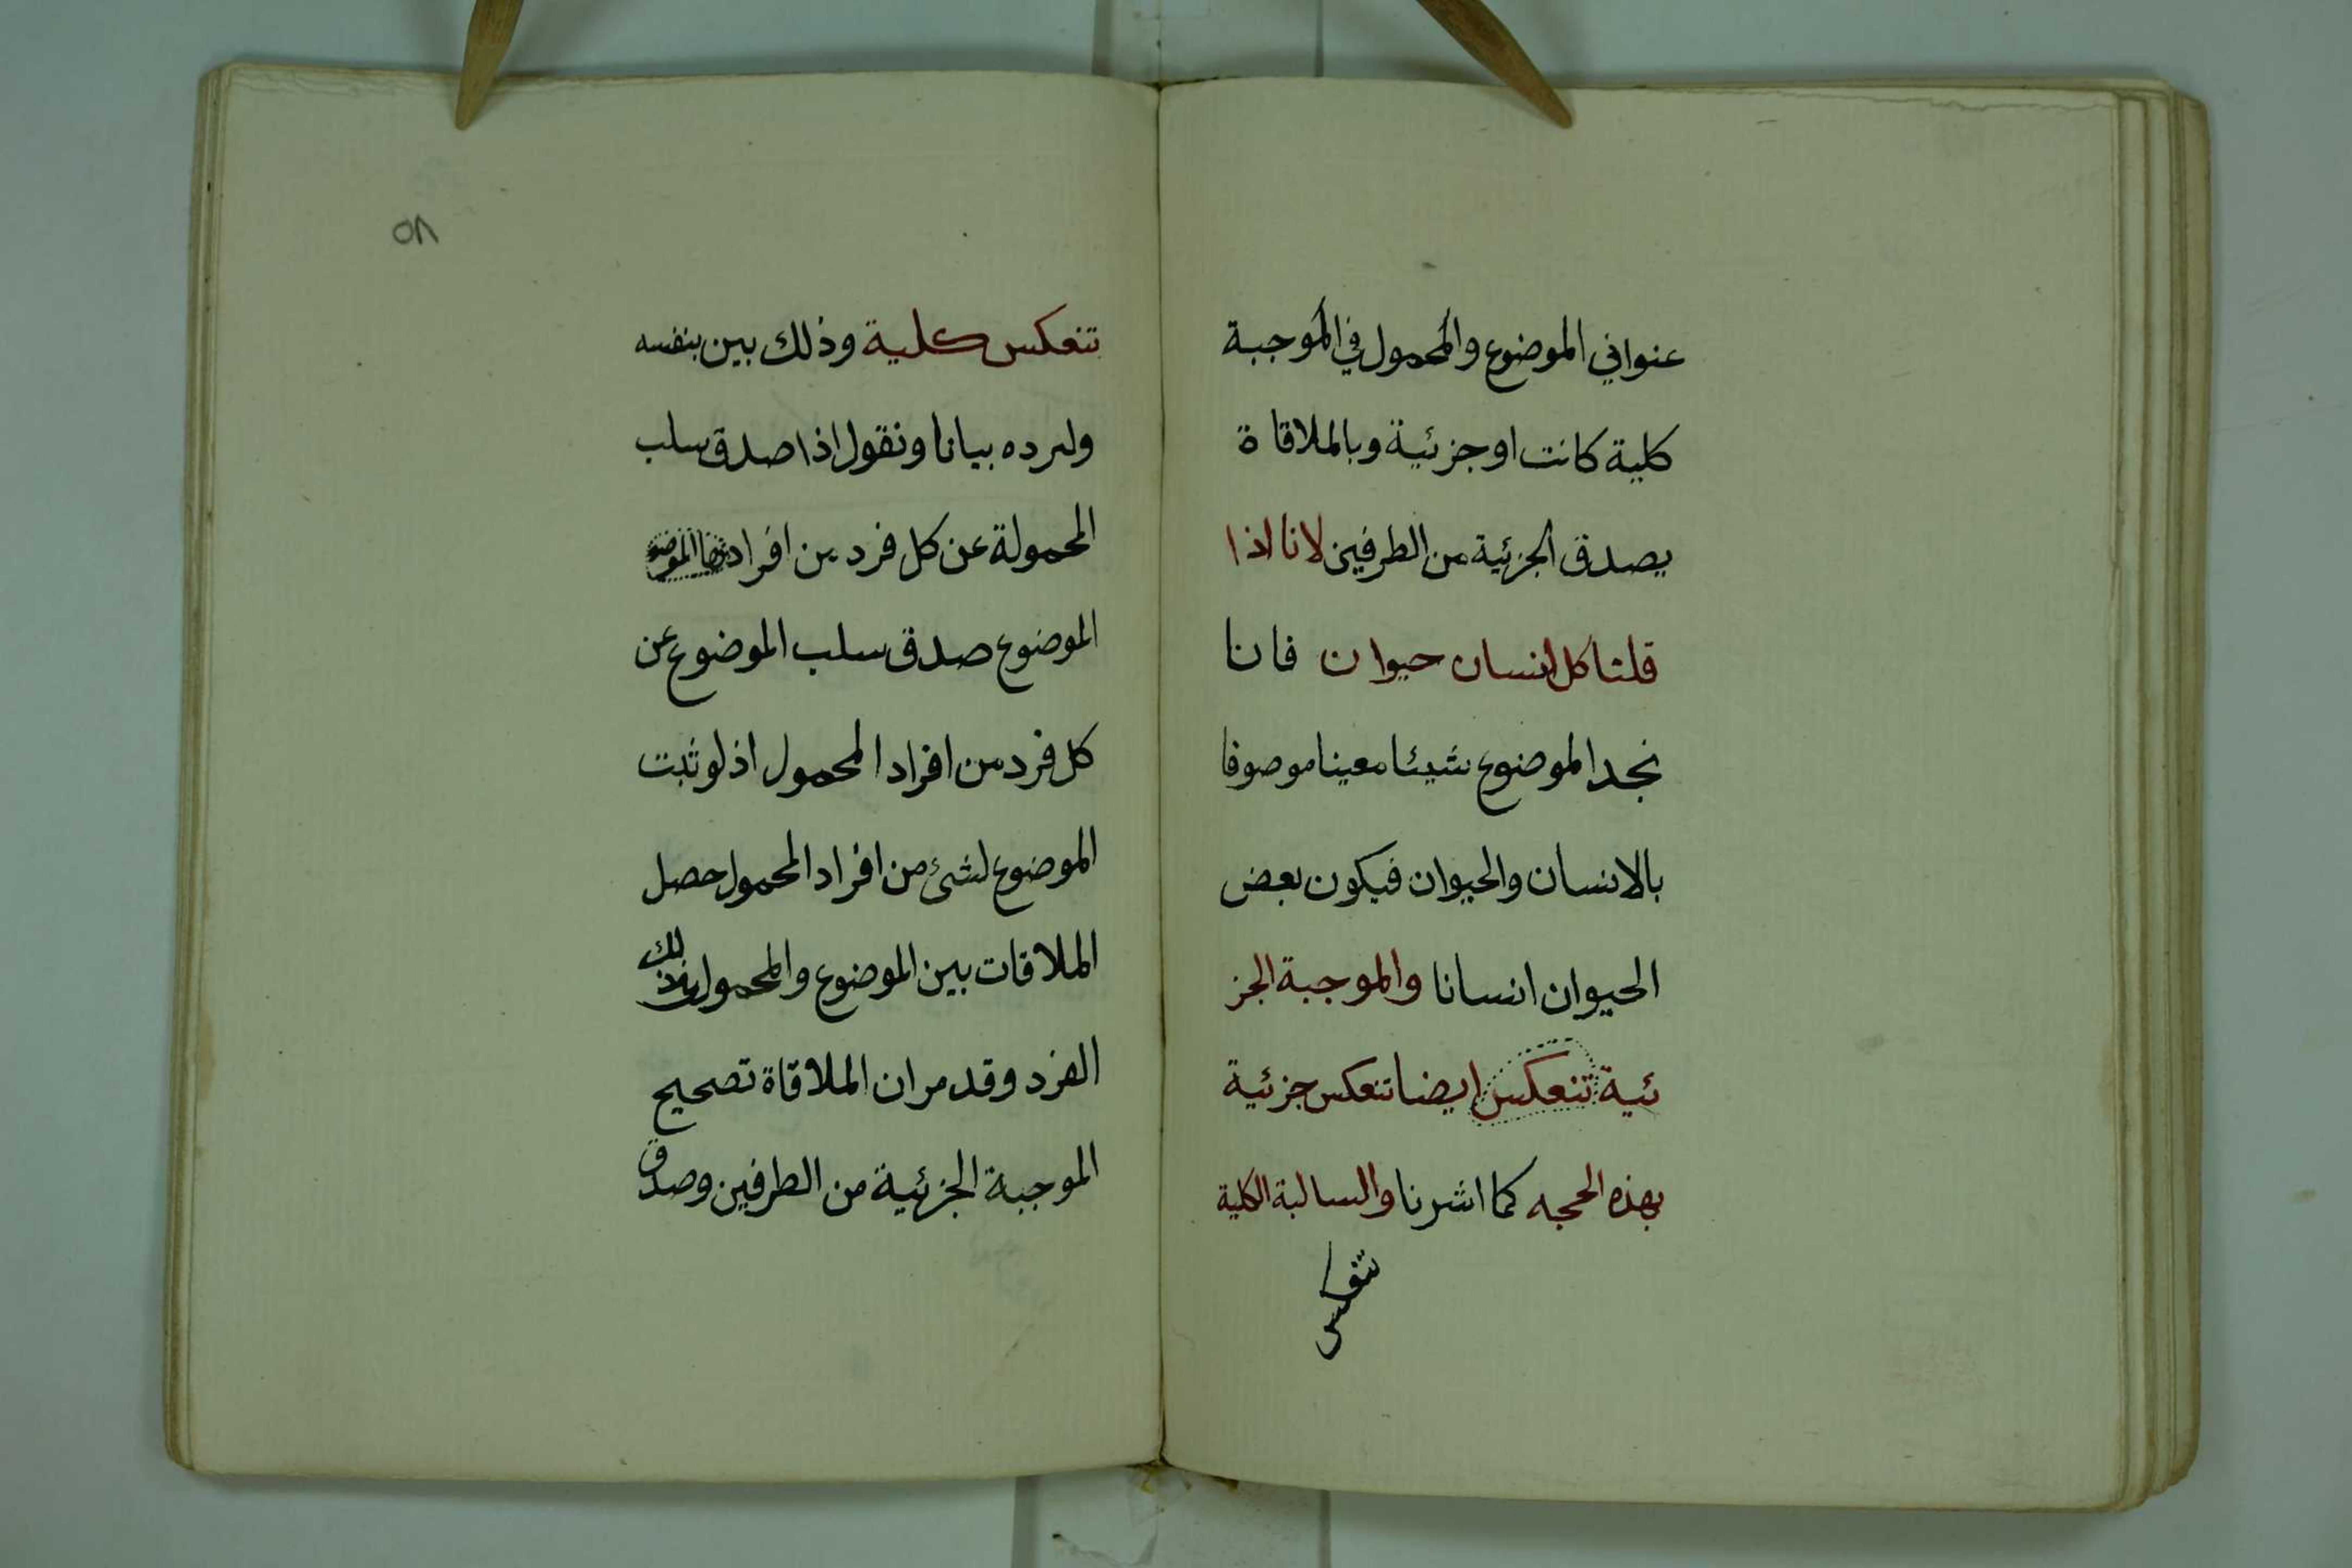 عنواني الموضوع والمحمول في الموجبة
كلية كانت او جزئية وبالملاقاة
يصدق الجزئية من الطرفين لانا اذا
قلنا كل انسان حيوان فانا
نجد الموضوع شيئا معينا موصوفا
بالانسان والحيوان فيكون بعض
الحيوان انسانا والموجبة الجز
ئية تنعكس ايضا تنعكس جزئية
بهذه الحجه كما اشرنا والسالبة الكلية
تنعكس
٥٨
تنعكس كلية وذلك بين بنفسه
ولنرده بيانا ونقول اذا صدق سلب
المحمولة عن كل فرد من افراد
الموضوع صدق سلب الموضوع عن
كل فرد من افراد المحمول اذ لو ثبت
الموضوع لشئ من افراد المحمول حصل
الملاقات بين الموضوع والمحمول
الفرد وقد مر ان الملاقاة تصحيح
الموجبة الجزئية من الطرفين وصدق